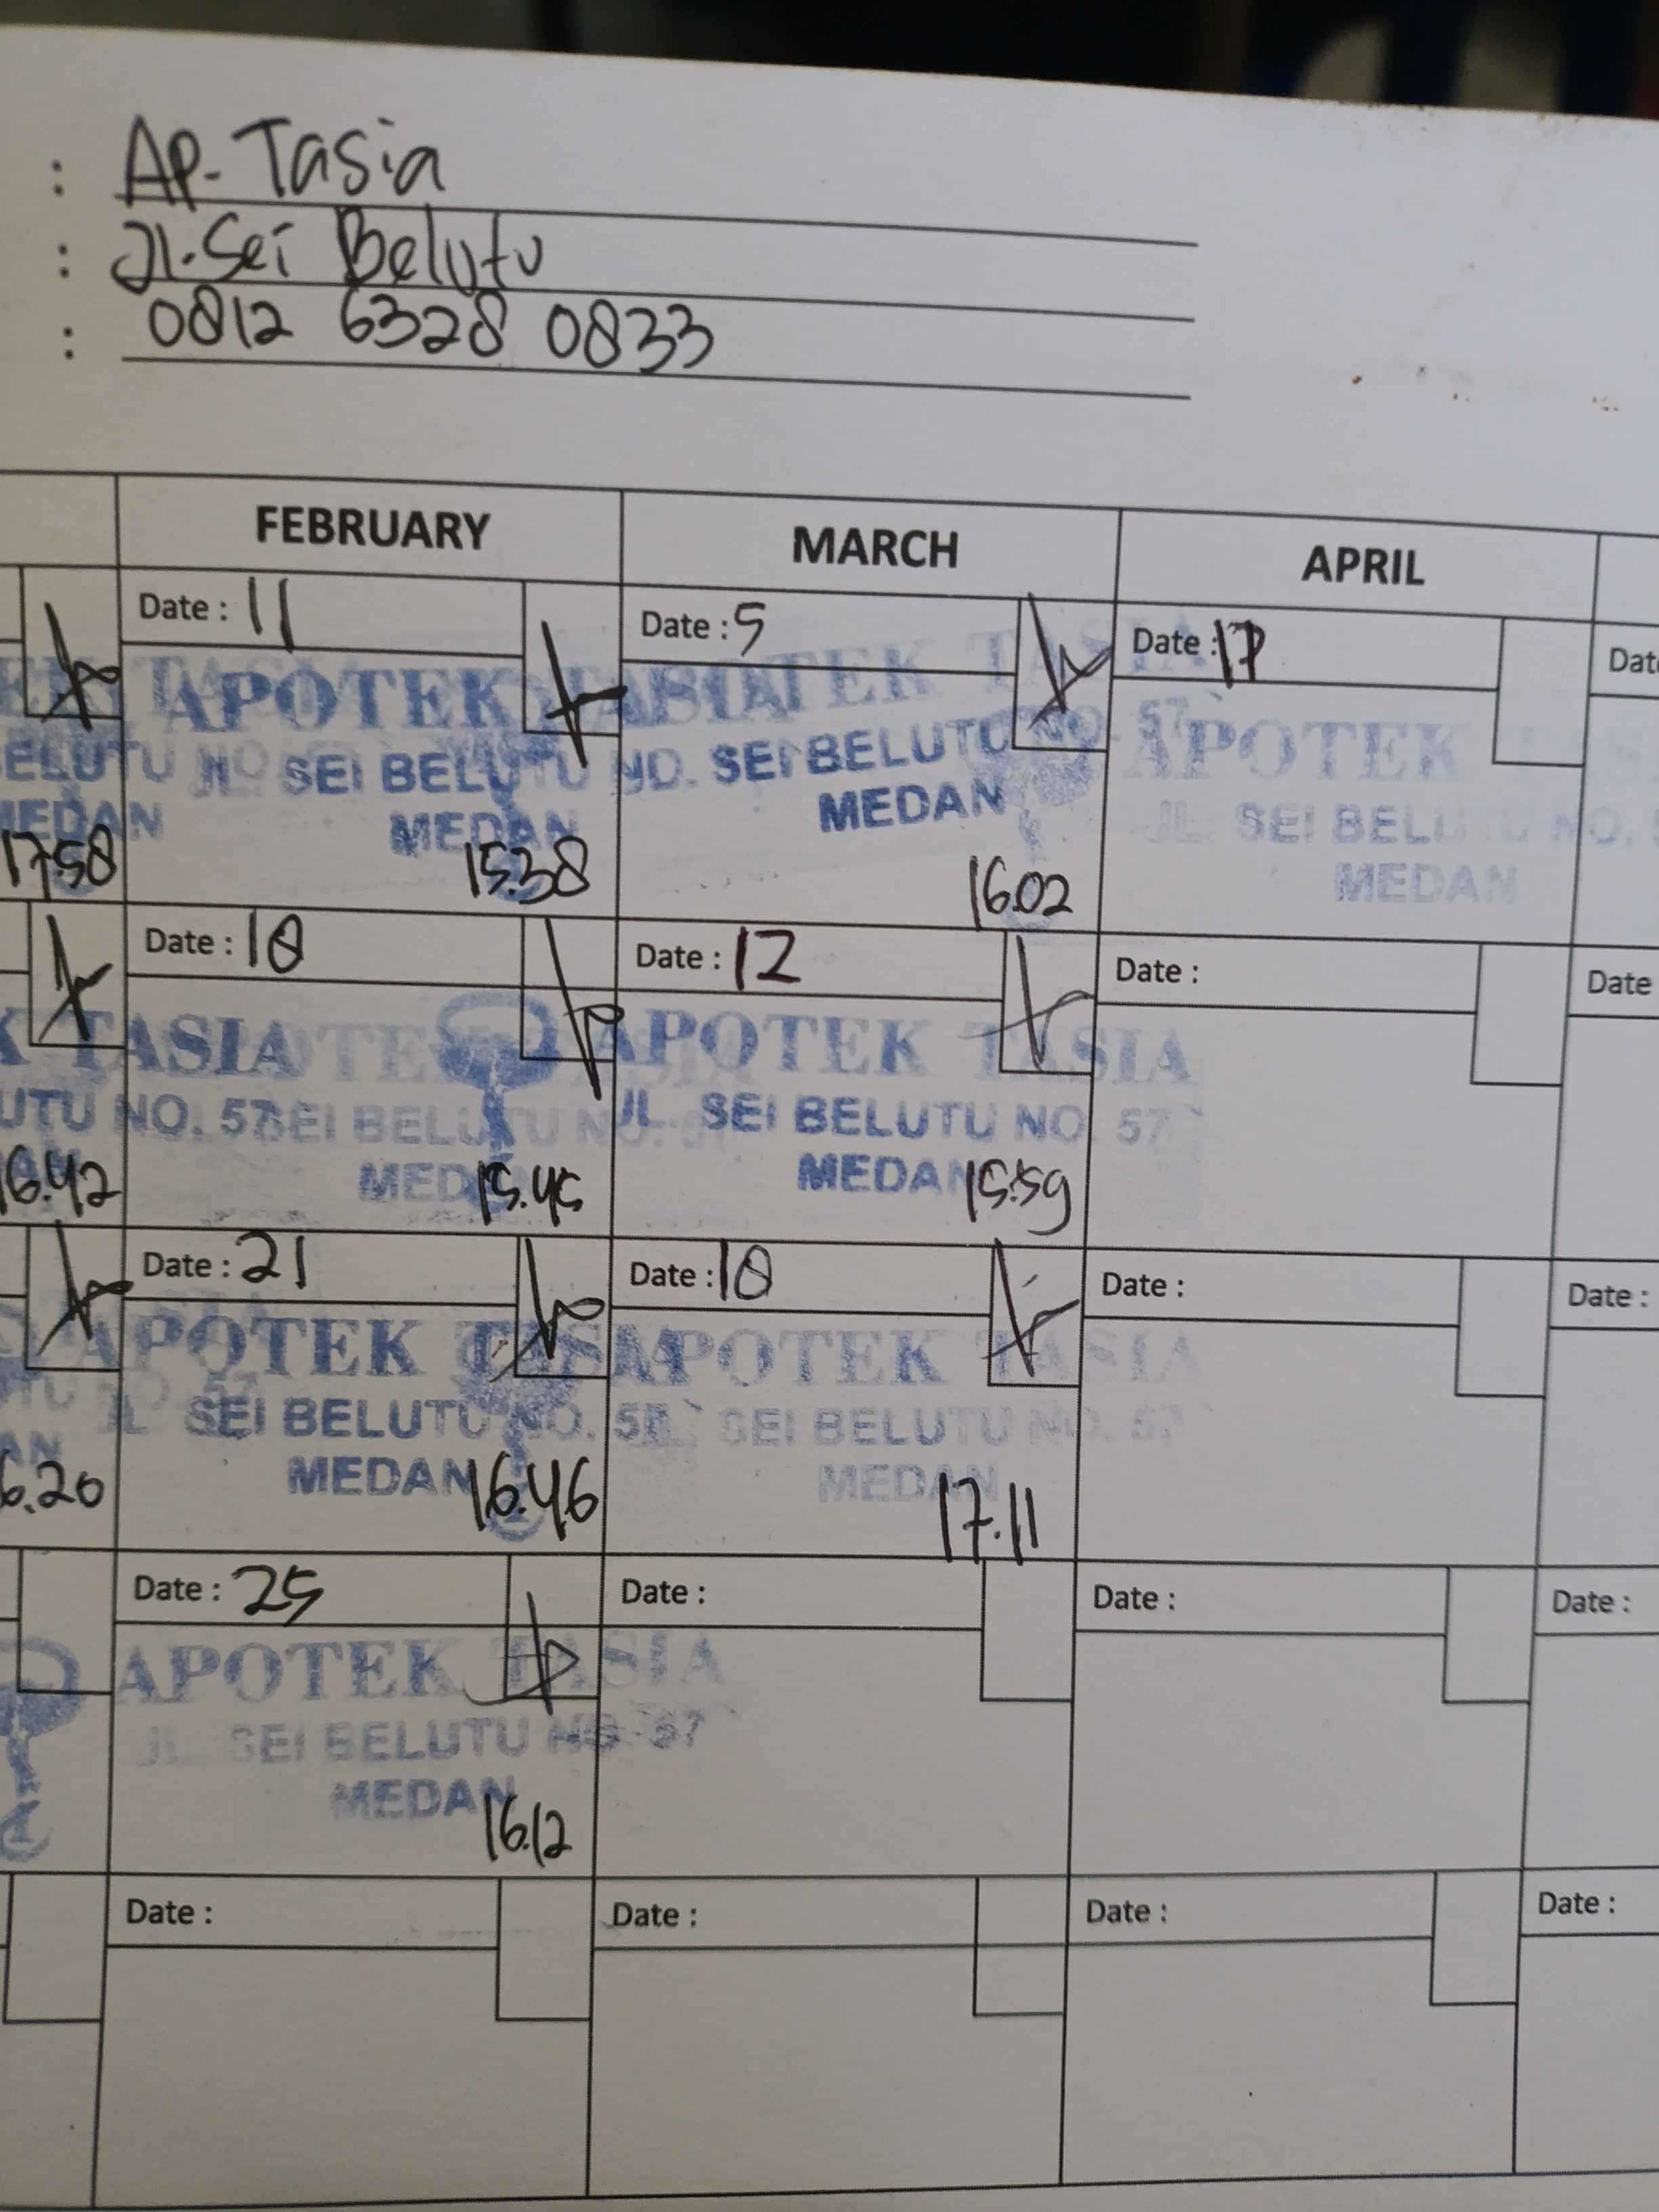 : AP- Tasia
: Jl. Sei Belutu
: 0812 6328 0833
FEBRUARY MARCH APRIL
Date : 11 Date : 5 Date : 17
APOTEK TASIA APOTEK TASIA APOTEK
JL. SEI BELUTU NO. SEI BELUTU NO. 57 JL. SEI BELUTU NO.
MEDAN MEDAN MEDAN MEDAN
17.58 15.38 16.02
Date : 18 Date : 12 Date : Date
TASIA APOTEK TASIA
UTU NO. 57 SEI BELUTU NO. JL. SEI BELUTU NO. 57
MEDAN MEDAN
16.42 15.45 15.59
Date : 21 Date : 18 Date : Date :
APOTEK TASIA APOTEK TASIA
JL. SEI BELUTU NO. 57 SEI BELUTU NO. 57
MEDAN MEDAN
6.20 16.46 17.11
Date : 25 Date : Date : Date :
APOTEK TASIA
JL. SEI BELUTU NO. 57
MEDAN
16.12
Date : Date : Date : Date :